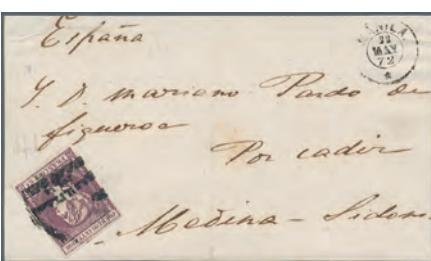 España
MANILA
22
MAY
72
S. D. Mariano Pardo de
figueroa
Por cadiz
Medina - Sidoni